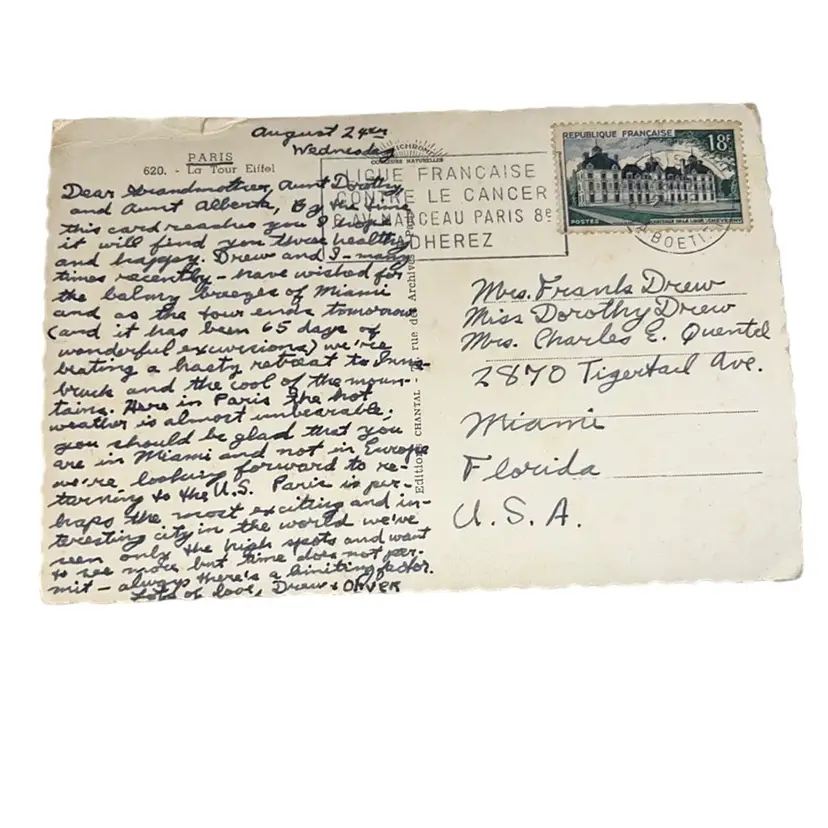 August 24th
Wednesday
PARIS
620. - La Tour Eiffel
Dear Grandmother, Aunt Dorothy
and Aunt Alberta, By the time
this card reaches you I hope
it will find you three healthy
and happy. Drew and I - many
times recently - have wished for
the balmy breezes of Miami
and as the tour ends tomorrow
(and it has been 65 days of
wonderful excursions) we're
beating a hasty retreat to Inns-
bruck and the cool of the moun-
tains. Here in Paris the hot
weather is almost unbearable;
you should be glad that you
are in Miami and not in Europe
we're looking forward to re-
turning to the U.S. Paris is per-
haps the most exciting and in-
teresting city in the world we've
seen only the high spots and want
to see more but time does not per-
mit - always there's a limiting factor.
Lots of love, Drew + Oliver
Editions CHANTAL - rue des Archives
LIGUE FRANCAISE
CONTRE LE CANCER
AV. MARCEAU PARIS 8e
ADHEREZ
REPUBLIQUE FRANÇAISE
18F
POSTES
CHATEAU DE LA LOIRE - CHEVERNY
LA BOETI
Mrs. Frank Drew
Miss Dorothy Drew
Mrs. Charles E. Quentel
2870 Tigertail Ave.
Miami
Florida
U.S.A.